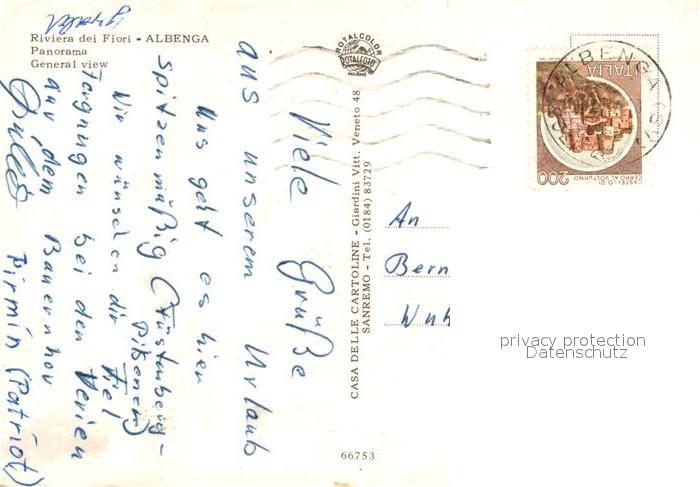 Riviera dei Fiori - ALBENGA
Panorama
General view
Viele Grüße
aus unserem Urlaub
Uns geht es hier
spitzenmäßig (Fürstenberg-
Pilsener)
Wir wünschen dir Fiel
Fergnügen bei den Ferien
auf dem Bauernhov
Firmin (Patriot)
ROTALCOLOR
ROTALFOTO
MILANO
CASA DELLE CARTOLINE - Giardini Vitt. Veneto 48
SANREMO - Tel. (0184) 83729
66753
An
Bern
ALBENGA (SV)
ITALIA
CASTELLO DI
CERRO AL VOLTURNO
200
privacy protection
Datenschutz